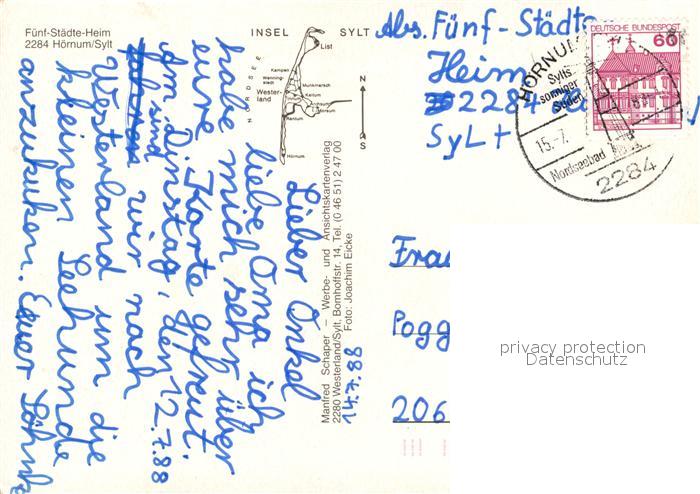 Fünf-Städte-Heim
2284 Hörnum/Sylt
INSEL SYLT
NORDSEE
List
Kampen
Wenning-
stedt
Wester-
land
Munkmarsch
Keitum
Morsum
Rantum
Hörnum
N
S
Manfred Schaper – Werbe- und Ansichtskartenverlag
2280 Westerland/Sylt, Bomhoffstr. 14, Tel. (0 46 51) 2 47 00
Foto: Joachim Eicke
14.7.88
Lieber Onkel
liebe Oma ich
habe mich sehr über
eure Karte gefreut.
Am Dinstag, den 12.7.88
sind wir nach
Westerland um die
kleinen Seehunde
anzukuken. Euer Söhnke
Abs. Fünf-Städte-
Heim
2284
Sylt
DEUTSCHE BUNDESPOST
60
HÖRNUM
Sylts
sonniger
Süden
15.-7.
Nordseebad
2284
Frau
Pogg
206
privacy protection
Datenschutz